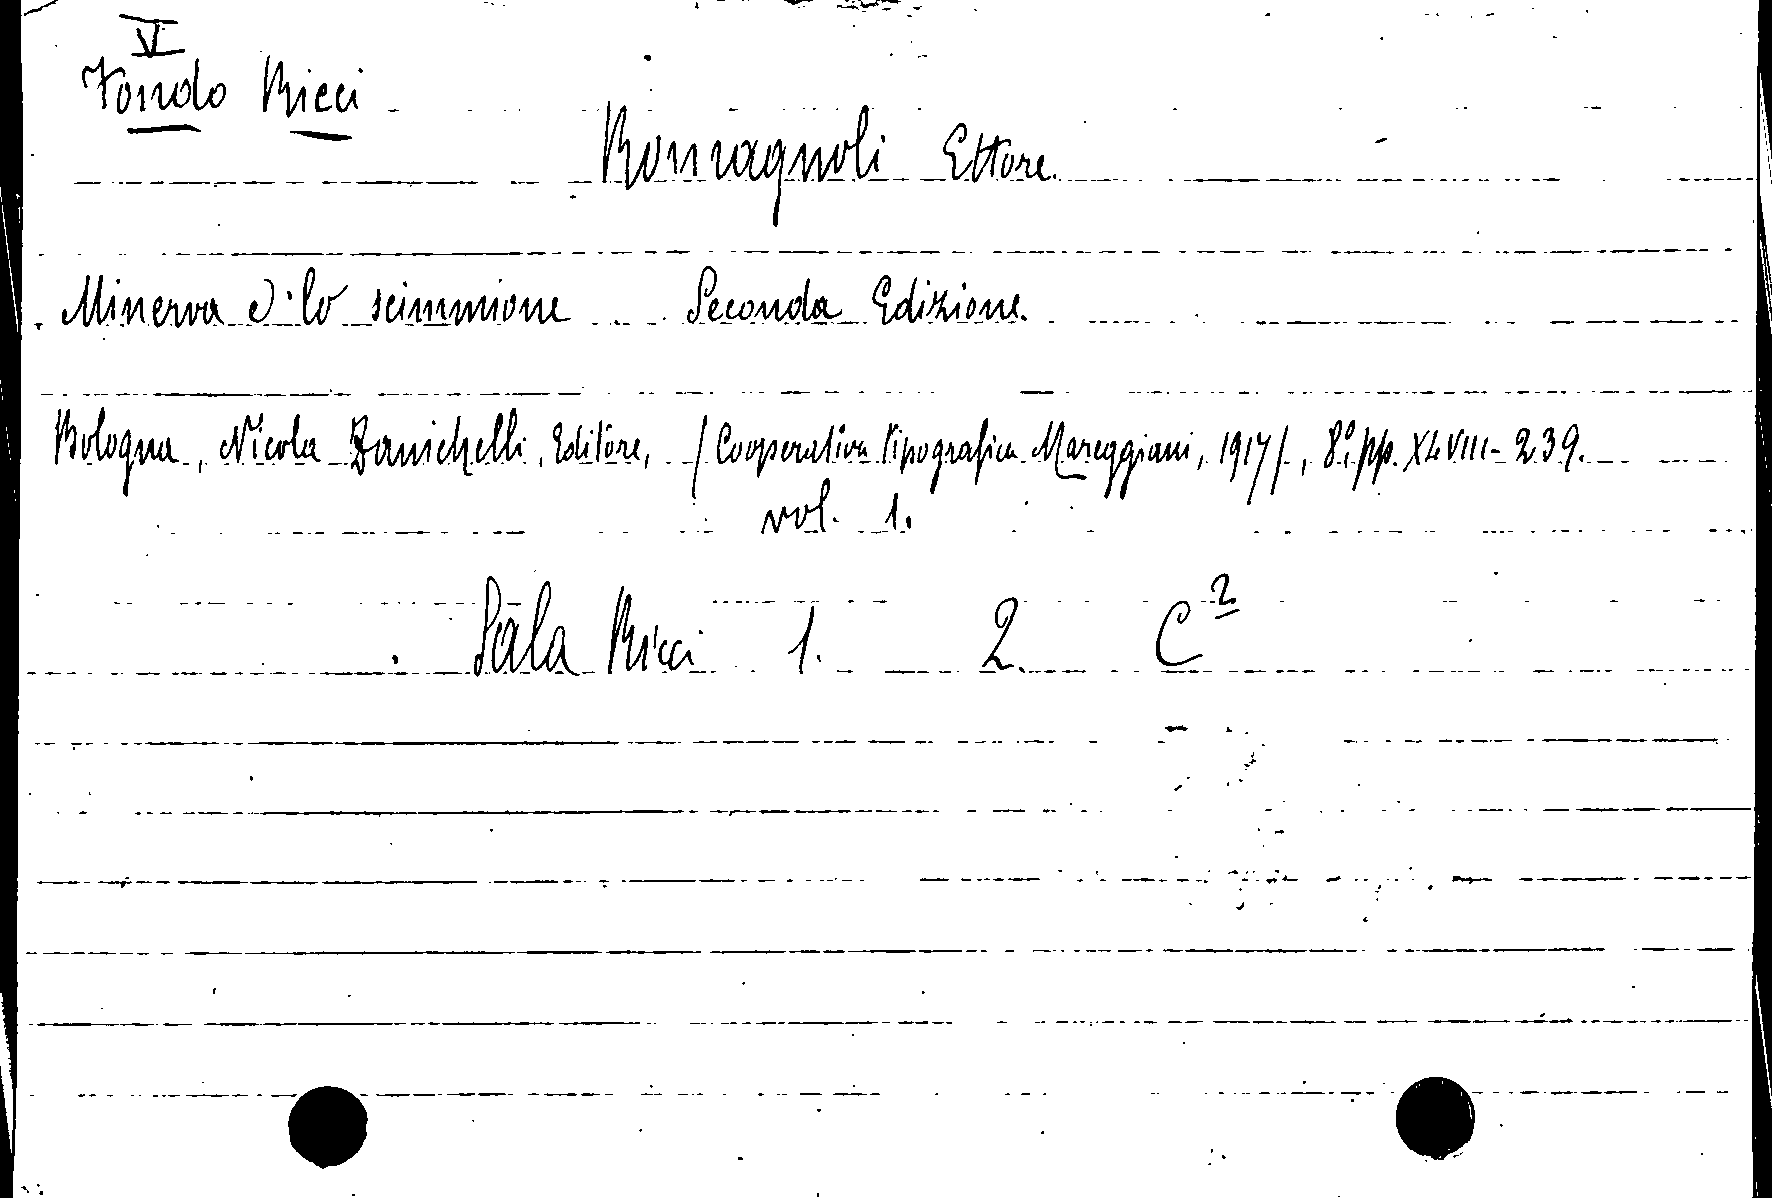 V
Fondo Ricci
Romagnoli Ettore.
Minerva e lo scimmione Seconda Edizione.
Bologna, Nicola Zanichelli, Editore, (Cooperativa Tipografica Mareggiani, 1917), 8°, pp. XLVIII-239.
vol. 1.
Sala Ricci 1. 2. C²